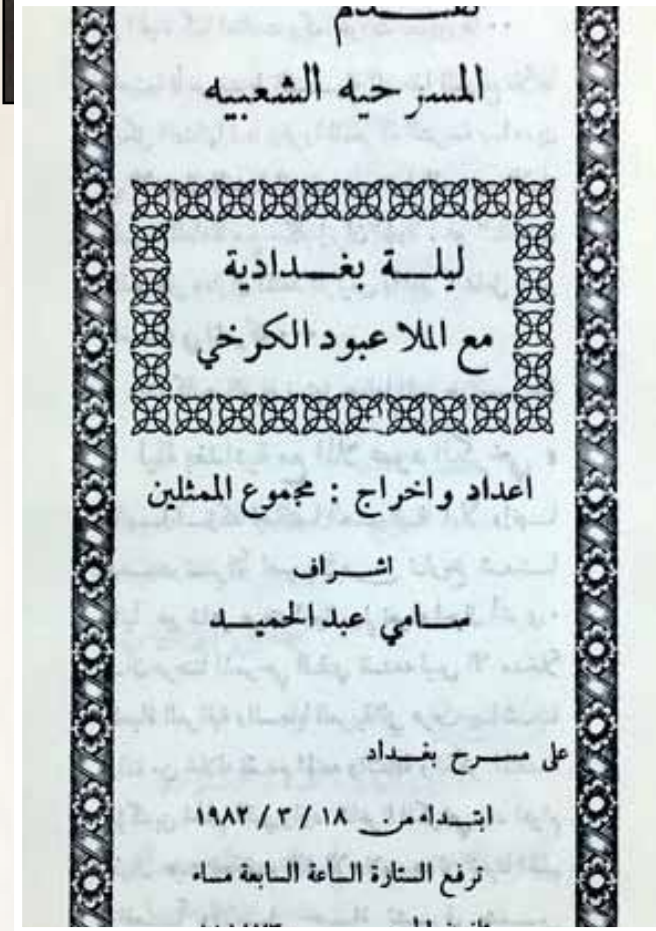 تقدم
المسرحيه الشعبيه
ليلــة بغــدادية
مع الملا عبود الكرخي
اعداد واخراج : مجموع الممثلين
اشــراف
ســامي عبد الحميــد
على مســرح بغــداد
ابتــداء من ١٨ / ٣ / ١٩٨٢
ترفع الستارة الساعة السابعة مساء